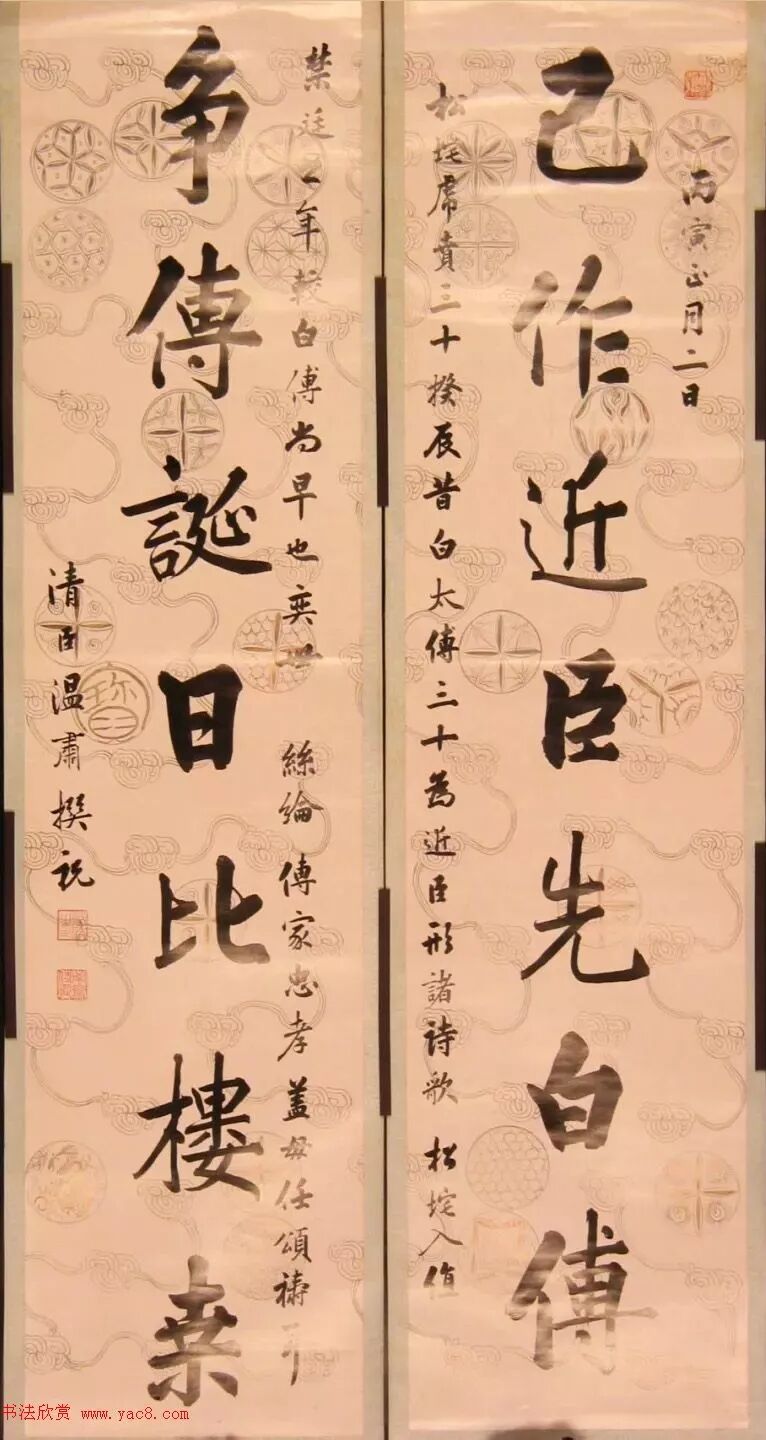 丙寅正月二日
已作近臣先白傅
松垞席賁三十揆辰昔白太傅三十為近臣形諸詩歌 松垞入值
禁廷工年較白傅尚早也奕世 絲綸傳家忠孝蓋毋任頌禱耳
争傳誕日比樓桒
清臣温肅撰祝
书法欣赏 www.yac8.com